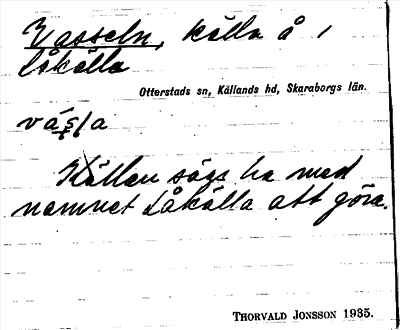 Vasseln, källa å 1
Låkälla
Otterstads sn, Kållands hd, Skaraborgs län.
vásla
Källan sägs ha med
namnet Låkälla att göra.
THORVALD JONSSON 1935.